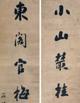 小山叢桂
東閣官梅